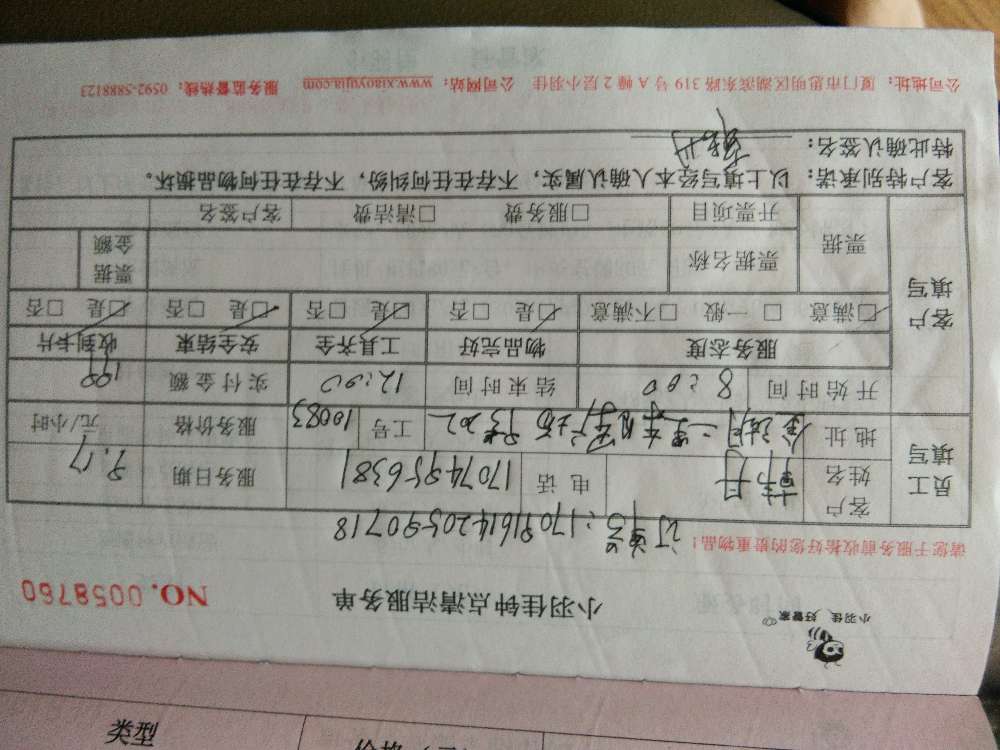 小羽佳 好管家
小羽佳钟点清洁服务单
NO.0058760
请您于服务前收拾好您的贵重物品!
订单号:1709161420590718
员工填写
客户姓名
电话 17074956381
服务日期 9.17
地址
工号 10083
服务价格 元/小时
开始时间 8:00 结束时间 12:00 实付金额 199
客户填写
服务态度 物品完好 工具齐全 安全结束 收到卡片
☑满意 □一般 □不满意 ☑是 □否 ☑是 □否 ☑是 □否 ☑是 □否
票据
票据名称 票据金额
开票项目 □服务费 □清洁费 客户签名
客户特别承诺:以上填写经本人确认属实,不存在任何纠纷,不存在任何物品损坏。
特此确认签名:
公司地址:厦门市思明区湖滨东路319号A幢2层小羽佳 公司网站:www.xiaoyujia.com 服务监督热线:0592-5888123
类型